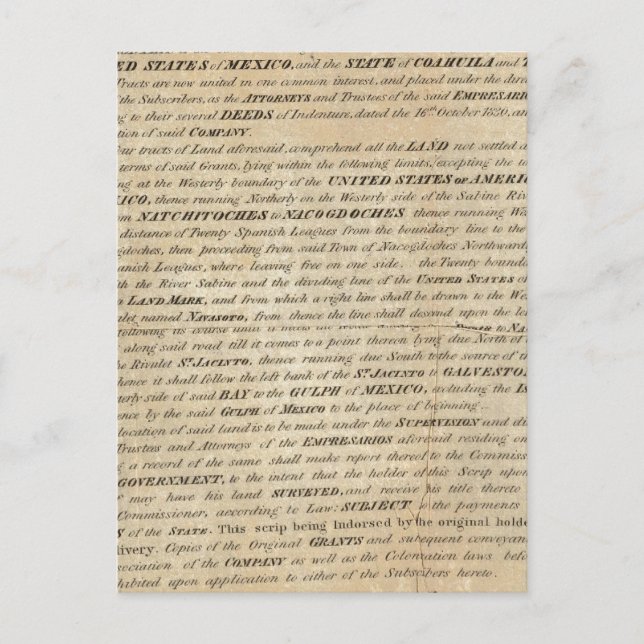 ED STATES of MEXICO, and the STATE of COAHUILA and T
Tracts are now united in one common interest, and placed under the dire
the Subscribers, as the ATTORNEYS and Trustees of the said EMPRESARIO
g to their several DEEDS of Indenture, dated the 16th October 1830, an
tion of said COMPANY.
our tracts of Land aforesaid, comprehend all the LAND not settled a
terms of said Grants, lying within the following limits, excepting the to
ng at the Westerly boundary of the UNITED STATES OF AMERIC
ICO, thence running Northerly on the Westerly side of the Sabine Riv
om NATCHITOCHES to NACOGDOCHES, thence running We
distance of Twenty Spanish Leagues from the boundary line to the
gdoches, then proceeding from said Town of Nacogdoches Northward
anish Leagues, where leaving free on one side. the Twenty bounda
th the River Sabine and the dividing line of the UNITED STATES of
a LAND MARK, and from which a right line shall be drawn to the We
ulet named NAVASOTO, from thence the line shall descend upon the le
following its course until it meets the to NA
along said road till it comes to a point thereon lying due North of
the Rivulet ST. JACINTO, thence running due South to the source of th
hence it shall follow the left bank of the ST. JACINTO to GALVESTO
terly side of said BAY to the GULPH of MEXICO, excluding the Is
ence by the said GULPH of MEXICO to the place of beginning.
location of said land is to be made under the SUPERVISION and di
Trustees and Attorneys of the EMPRESARIOS aforesaid residing on
g a record of the same shall make report thereof to the Commiss
GOVERNMENT, to the intent that the holder of this Scrip upon
f may have his land SURVEYED, and receive his title thereto
Commissioner, according to Law: SUBJECT to the payments
S of the STATE. This scrip being Indorsed by the original holde
livery. Copies of the Original GRANTS and subsequent conveyan
sociation of the COMPANY as well as the Colonization laws befo
hibited upon application to either of the Subscibers hereto.